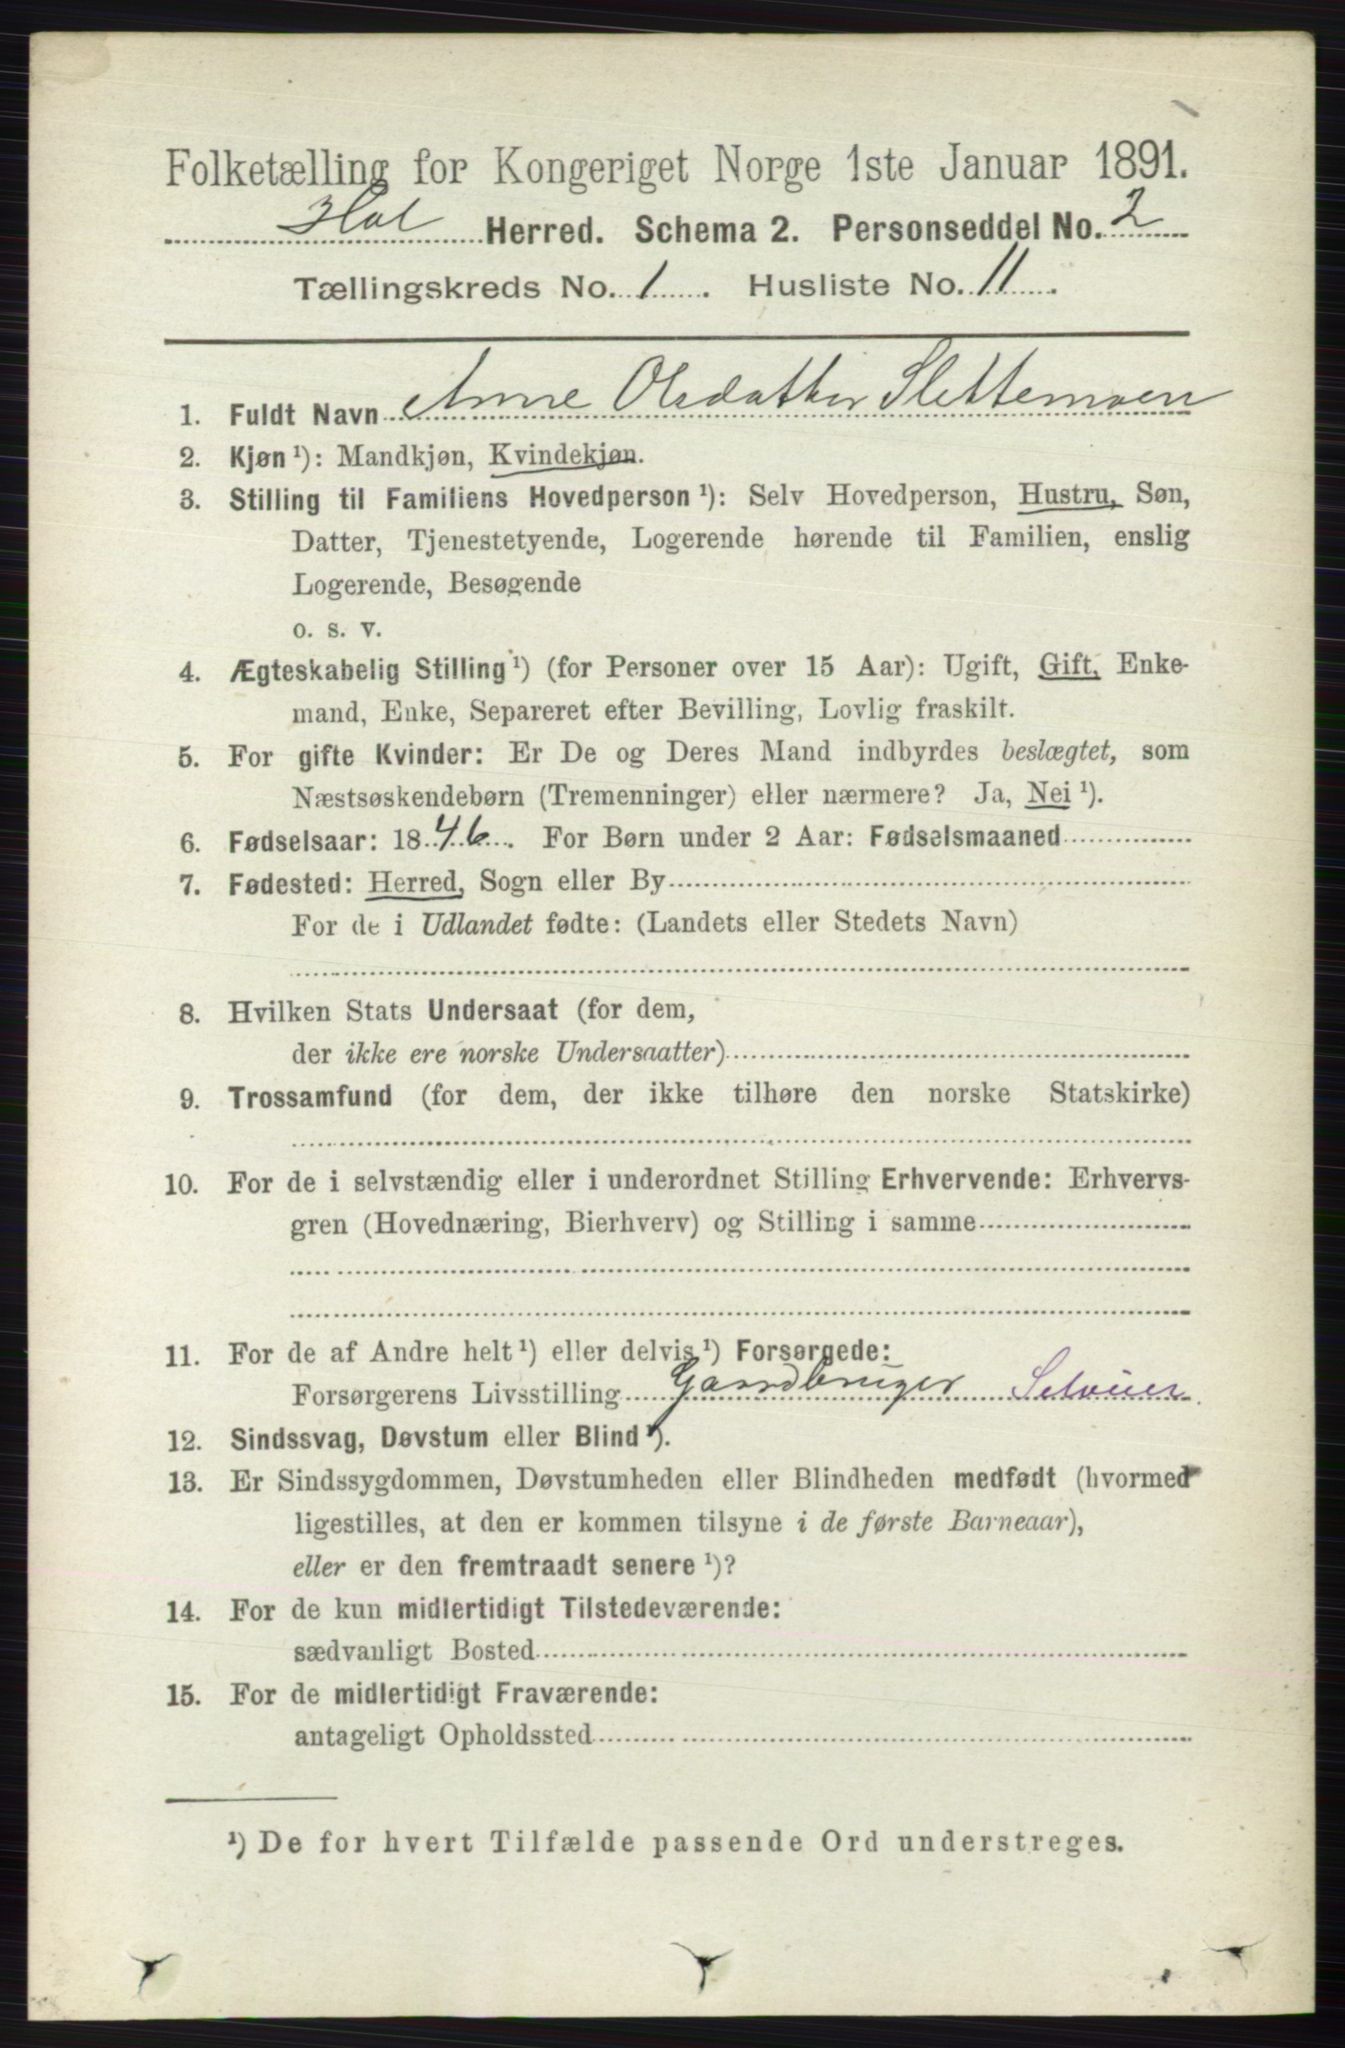 Folketælling for Kongeriget Norge 1ste Januar 1891.
Hol Herred. Schema 2. Personseddel No. 2
Tællingskreds No. 1. Husliste No. 11.
1. Fuldt Navn Anne Olsdatter Slettemoen
2. Kjøn ¹): Mandkjøn, Kvindekjøn.
3. Stilling til Familiens Hovedperson ¹): Selv Hovedperson, Hustru, Søn,
Datter, Tjenestetyende, Logerende hørende til Familien, enslig
Logerende, Besøgende
o. s. v.
4. Ægteskabelig Stilling ¹) (for Personer over 15 Aar): Ugift, Gift, Enke-
mand, Enke, Separeret efter Bevilling, Lovlig fraskilt.
5. For gifte Kvinder: Er De og Deres Mand indbyrdes beslægtet, som
Næstsøskendebørn (Tremenninger) eller nærmere? Ja, Nei ¹).
6. Fødselsaar: 1846. For Børn under 2 Aar: Fødselsmaaned
7. Fødested: Herred, Sogn eller By
For de i Udlandet fødte: (Landets eller Stedets Navn)
8. Hvilken Stats Undersaat (for dem,
der ikke ere norske Undersaatter)
9. Trossamfund (for dem, der ikke tilhøre den norske Statskirke)
10. For de i selvstændig eller i underordnet Stilling Erhvervende: Erhvervs-
gren (Hovednæring, Bierhverv) og Stilling i samme
11. For de af Andre helt ¹) eller delvis ¹) Forsørgede:
Forsørgerens Livsstilling Gaardbruger Selveier
12. Sindssvag, Døvstum eller Blind ¹).
13. Er Sindssygdommen, Døvstumheden eller Blindheden medfødt (hvormed
ligestilles, at den er kommen tilsyne i de første Barneaar),
eller er den fremtraadt senere ¹)?
14. For de kun midlertidigt Tilstedeværende:
sædvanligt Bosted
15. For de midlertidigt Fraværende:
antageligt Opholdssted
¹) De for hvert Tilfælde passende Ord understreges.